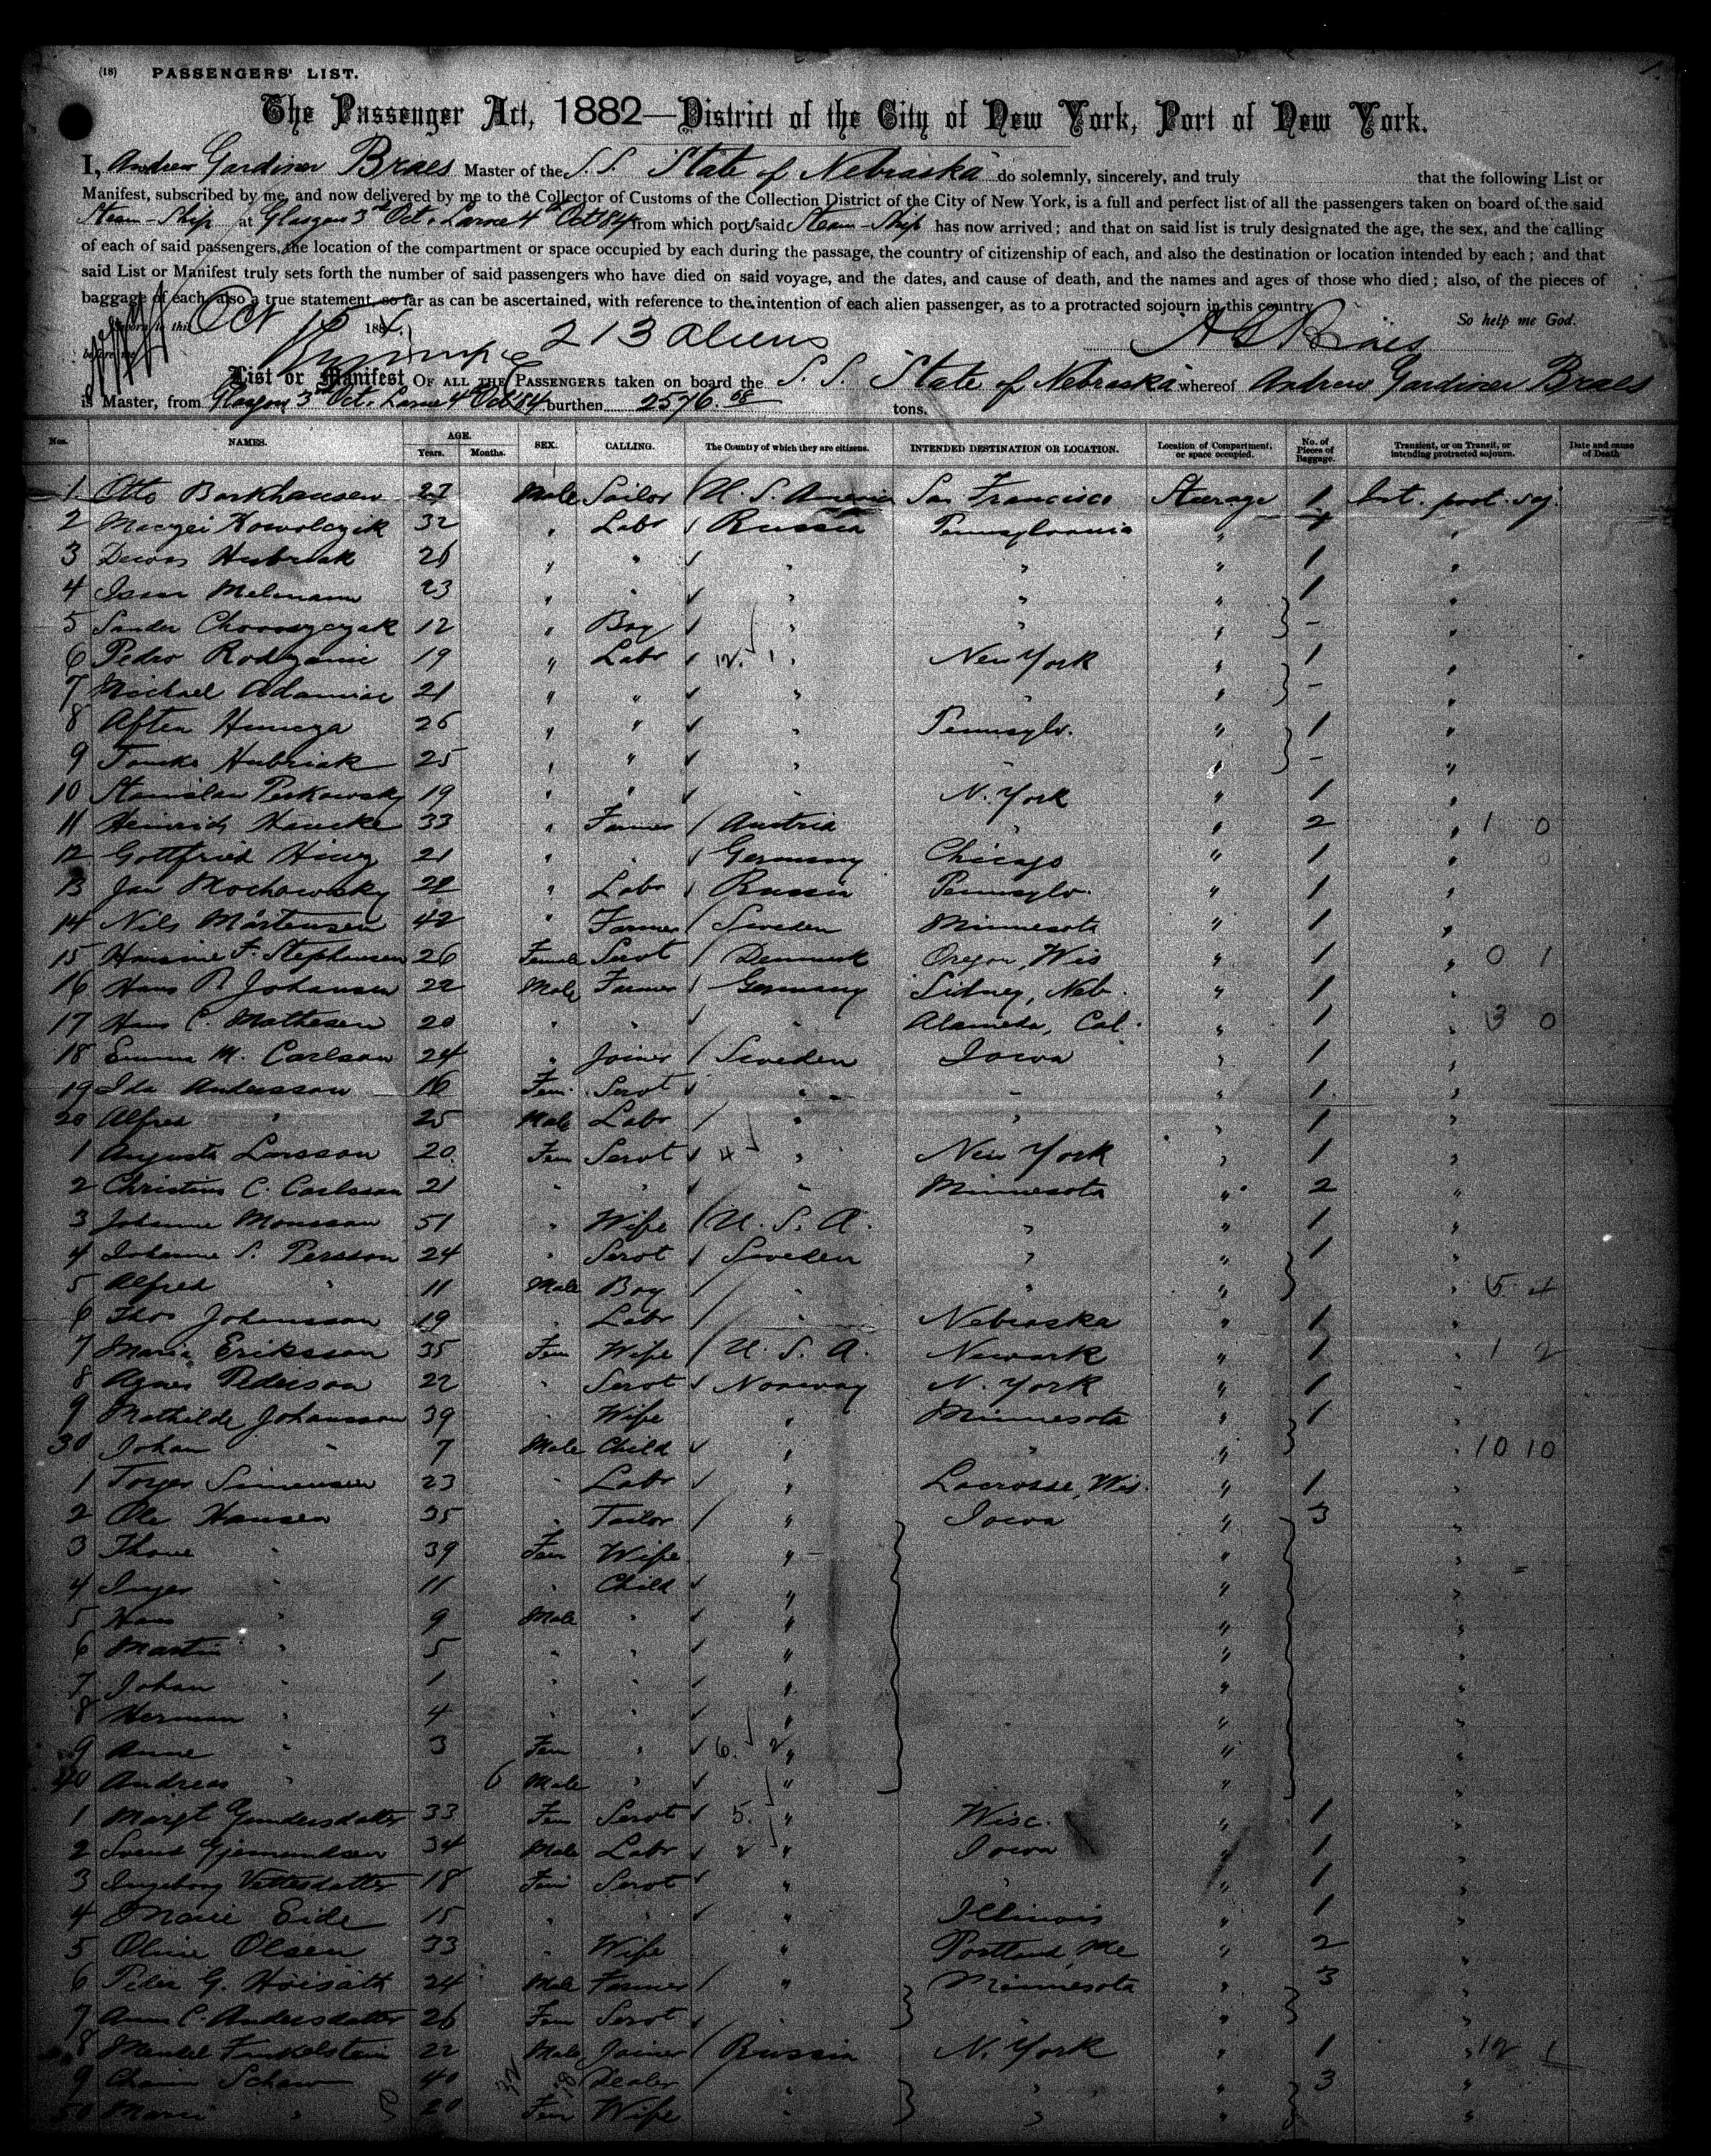 (18) PASSENGERS' LIST. 1.
The Passenger Act, 1882—District of the City of New York, Port of New York.
I, Andrew Gardiner Braes Master of the S.S. "State of Nebraska" do solemnly, sincerely, and truly that the following List or
Manifest, subscribed by me, and now delivered by me to the Collector of Customs of the Collection District of the City of New York, is a full and perfect list of all the passengers taken on board of the said
Steam-Ship at Glasgow 3rd Oct. Larne 4th Oct 84 from which port said Steam-Ship has now arrived; and that on said list is truly designated the age, the sex, and the calling
of each of said passengers, the location of the compartment or space occupied by each during the passage, the country of citizenship of each, and also the destination or location intended by each; and that
said List or Manifest truly sets forth the number of said passengers who have died on said voyage, and the dates, and cause of death, and the names and ages of those who died; also, of the pieces of
baggage of each, also a true statement, so far as can be ascertained, with reference to the intention of each alien passenger, as to a protracted sojourn in this country
Sworn to this Oct 15 1884. So help me God.
before me 213 aliens A G Braes
List or Manifest OF ALL THE PASSENGERS taken on board the S.S. State of Nebraska whereof Andrew Gardiner Braes
is Master, from Glasgow 3rd Oct. Larne 4th Oct 84 burthen 2576.68 tons.
Nos. NAMES. AGE. Years. Months. SEX. CALLING. The Country of which they are citizens. INTENDED DESTINATION OR LOCATION. Location of Compartment, or space occupied. No. of Pieces of Baggage. Transient, or on Transit, or intending protracted sojourn. Date and cause of Death
1 Otto Barkhausen 27 Male Sailor U. S. America San Francisco Steerage 1 Int. prot. soj.
2 Macyei Kowolczik 32 " Labr Russia Pennsylvania " 1 "
3 Hubriak 26 " " " " " 1 "
4 Melmann 23 " " " " " 1 "
5 Sander 12 " Boy " " " – "
6 Pedro 19 " Labr 12. 1. " New York " 1 "
7 Michael Adamiac 21 " " " " " – "
8 26 " " " Pennsylv. " 1 "
9 Hubriak 25 " " " " " – "
10 Stanislaw Perkowsky 19 " " " N. York " 1 "
11 Heinrich Hancke 33 " Farmer Austria " " 2 " 1 0
12 Gottfried 21 " " Germany Chicago " 1 "
13 Jan Mochowsky 22 " Labr Russia Pennsylv. " 1 "
14 Nils Mårtensen 42 " Farmer Sweden Minnesota " 1 "
15 Hansine F. Stephensen 26 Female Servt Denmark Oregon, Wis " 1 " 0 1
16 Hans P. Johansen 22 Male Farmer Germany Sidney, Neb. " 1 "
17 Hans C. Mathesen 20 " " " Alameda, Cal. " 1 " 3 0
18 M. Carlsson 24 " Joiner Sweden Iowa " 1 "
19 Ida Andersson 16 Fem. Servt " " " 1 "
20 Alfred " 25 Male Labr " " " 1 "
1 Augusta Larsson 20 Fem Servt 4 " New York " 1 "
2 Christina C. Carlsson 21 " " " Minnesota " 2 "
3 Johanna Monsson 51 " Wife U. S. A. " " 1 "
4 Johanna S. Persson 24 " Servt Sweden " " 1 "
5 Alfred " 11 Male Boy " " " " 5 4
6 Thos Johansson 19 " Labr " Nebraska " 1 "
7 Maria Eriksson 35 Fem Wife U. S. A. Newark " 1 " 1 2
8 Agnes Pederson 22 " Servt Norway N. York " 1 "
9 Mathilde Johansson 39 " Wife " Minnesota " 1 "
30 Johan " 7 Male Child " " " " 10 10
1 Simensen 23 " Labr " Lacrosse, Wis. " 1 "
2 Ole Hansen 35 " Tailor " Iowa " 3 "
3 Thone " 39 Fem Wife " " "
4 Inger " 11 " Child " " "
5 Hans " 9 Male " " " "
6 Martin " 5 " " " " "
7 Johan " 1 " " " " "
8 Herman " 4 " " " " "
9 Anne " 3 Fem " 6. 2 " " "
40 Andreas " 6 Male " " " "
1 Margt Gundersdatter 33 Fem Servt 5. " Wisc. " 1 "
2 Svend Gjermundsen 34 Male Labr 2 " Iowa " 1 "
3 Ingeborg Vettesdatter 18 Fem Servt " " " 1 "
4 Marie Eide 15 " " " Illinois " 1 "
5 Oline Olsen 33 " Wife " Portland, Me " 2 "
6 Peder G. Hoisath 24 Male Farmer " Minnesota " 3 "
7 Anne C. Andersdatter 26 Fem Servt " " " "
8 Mendel Finkelstein 22 Male Joiner Russia N. York " 1 " 12 1
9 Chaim Schaw 40 " Dealer " " " 3 "
50 " 20 Fem Wife " " " "